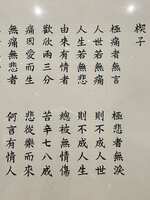 楔子
極痛者無言　極悲者無淚
人世若無痛　則不成人世
人生若無悲　則不成人生
由來有情者　總被無情傷
歡欣兩三分　苦辛七八成
痛因愛而生　悲從樂而來
無痛無悲者　何言有情人